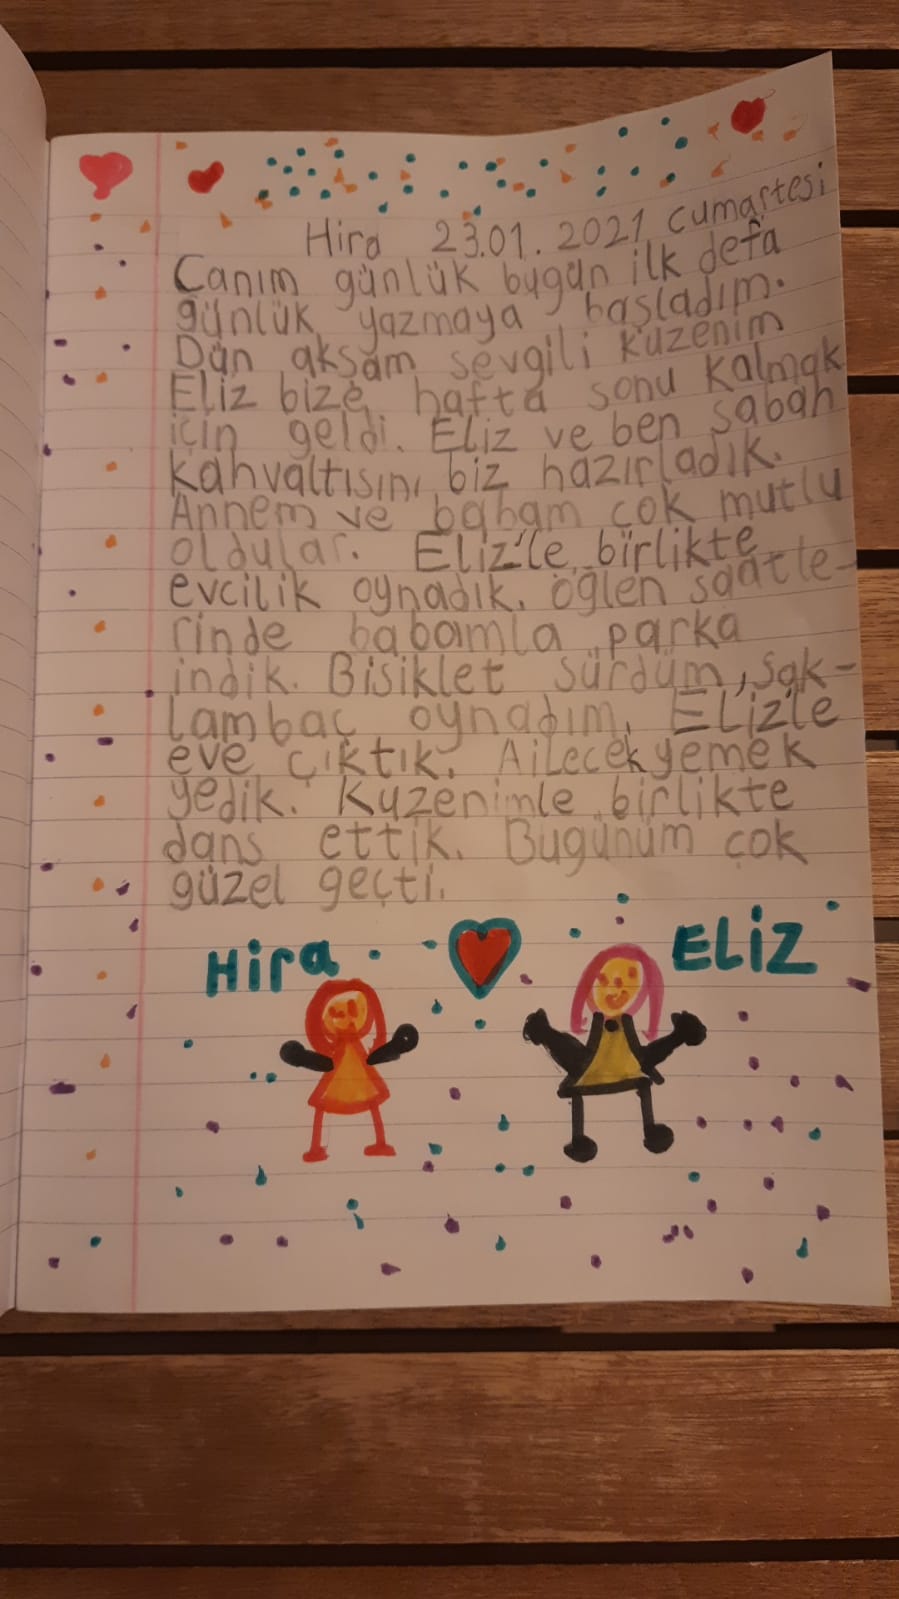 Hira 23.01.2021 cumartesi
Canım günlük bugün ilk defa
günlük yazmaya başladım.
Dün akşam sevgili kuzenim
Eliz bize hafta sonu kalmak
için geldi. Eliz ve ben sabah
kahvaltısını biz hazırladık.
Annem ve babam çok mutlu
oldular. Eliz'le birlikte
evcilik oynadık. öğlen saatle-
rinde babamla parka
indik. Bisiklet sürdüm, sak-
lambaç oynadım. Eliz'le
eve çıktık. Ailecek yemek
yedik. Kuzenimle birlikte
dans ettik. Bugünüm çok
güzel geçti.
Hira ELiZ